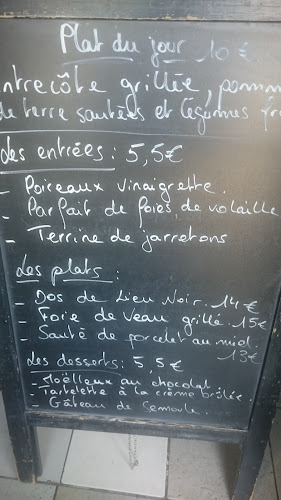 Plat du jour 10 €
ntrecôte grillée, pomm
de terre sautées et légumes fr
Les entrées : 5,5€
- Poireaux vinaigrette.
- Parfait de foies de volaille
- Terrine de jarretons
Les plats :
- Dos de Lieu Noir. 14 €
- Foie de Veau grillé. 15€
- Sauté de porcelet au miel.
13€
Les desserts : 5,5€
- Moëlleux au chocolat
- Tartelette à la crème brûlée.
- Gâteau de Semoule.